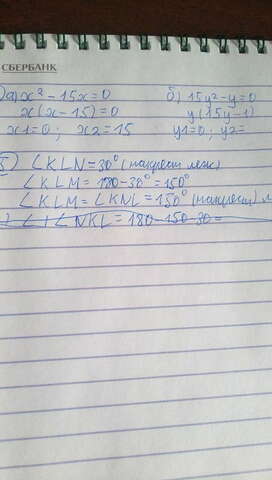 СБЕРБАНК
) a) x² - 15x = 0 б) 15y² - y = 0
x(x - 15) = 0 y(15y - 1)
x1 = 0 ; x2 = 15 y1 = 0 ; y2 =
5) ∠KLN = 30° (накрест леж)
∠KLM = 180 - 30° = 150°
∠KLM = ∠KNL = 150° (накрест)
) ∠1 ∠NKL = 180 - 150 - 30 =